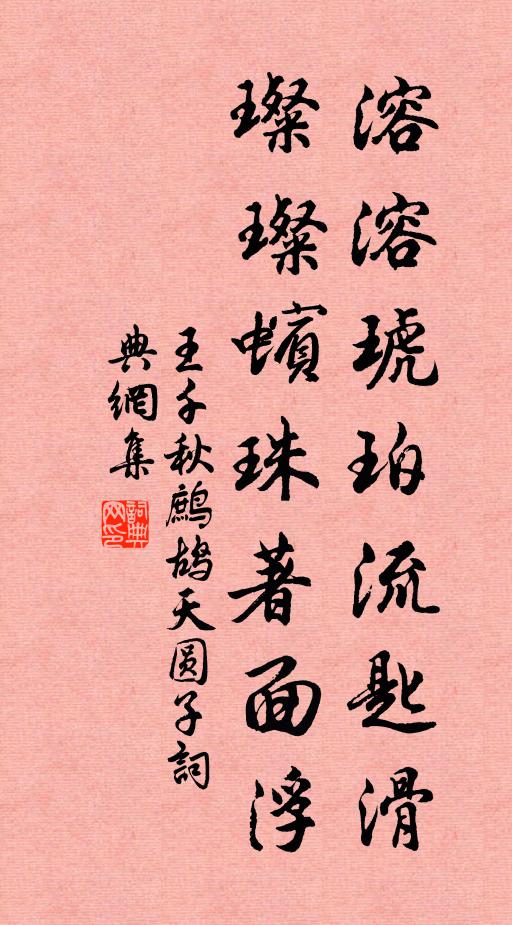 溶溶琥珀流匙滑
璨璨蠙珠著面浮
王千秋鹧鸪天圆子詞
典網集
詞典网印